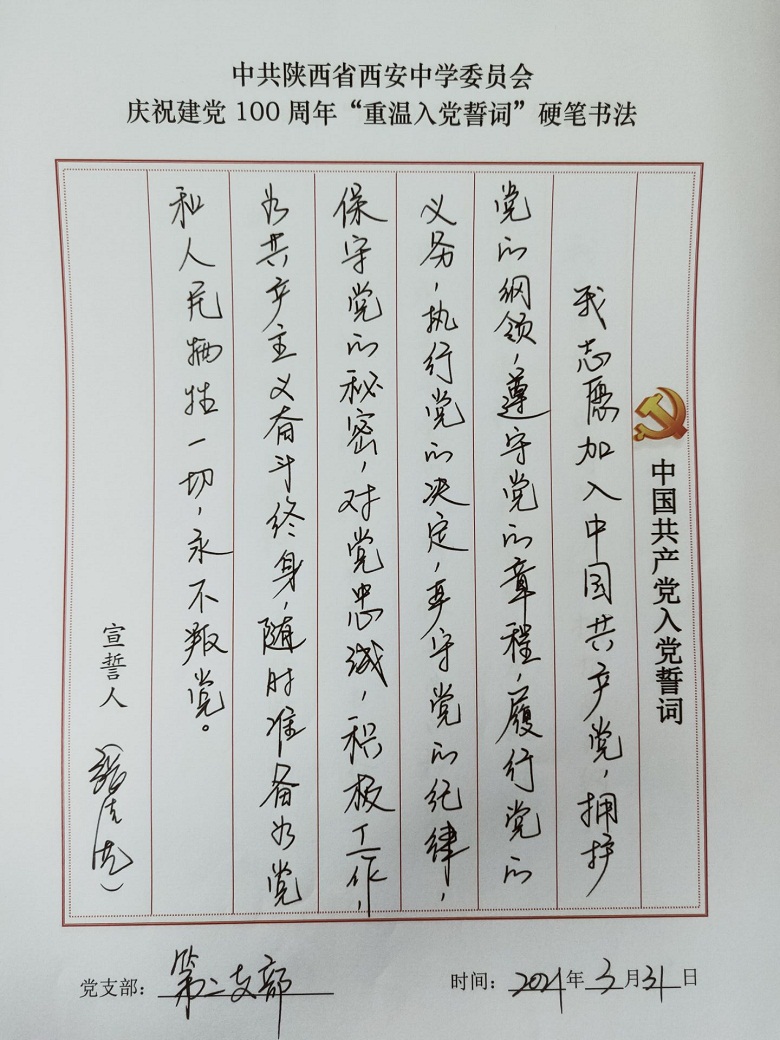 中共陕西省西安中学委员会
庆祝建党 100 周年“重温入党誓词”硬笔书法
中国共产党入党誓词
我志愿加入中国共产党，拥护
党的纲领，遵守党的章程，履行党的
义务，执行党的决定，严守党的纪律，
保守党的秘密，对党忠诚，积极工作，
为共产主义奋斗终身，随时准备为党
和人民牺牲一切，永不叛党。
宣誓人（）
党支部：第二支部
时间：2021年3月31日